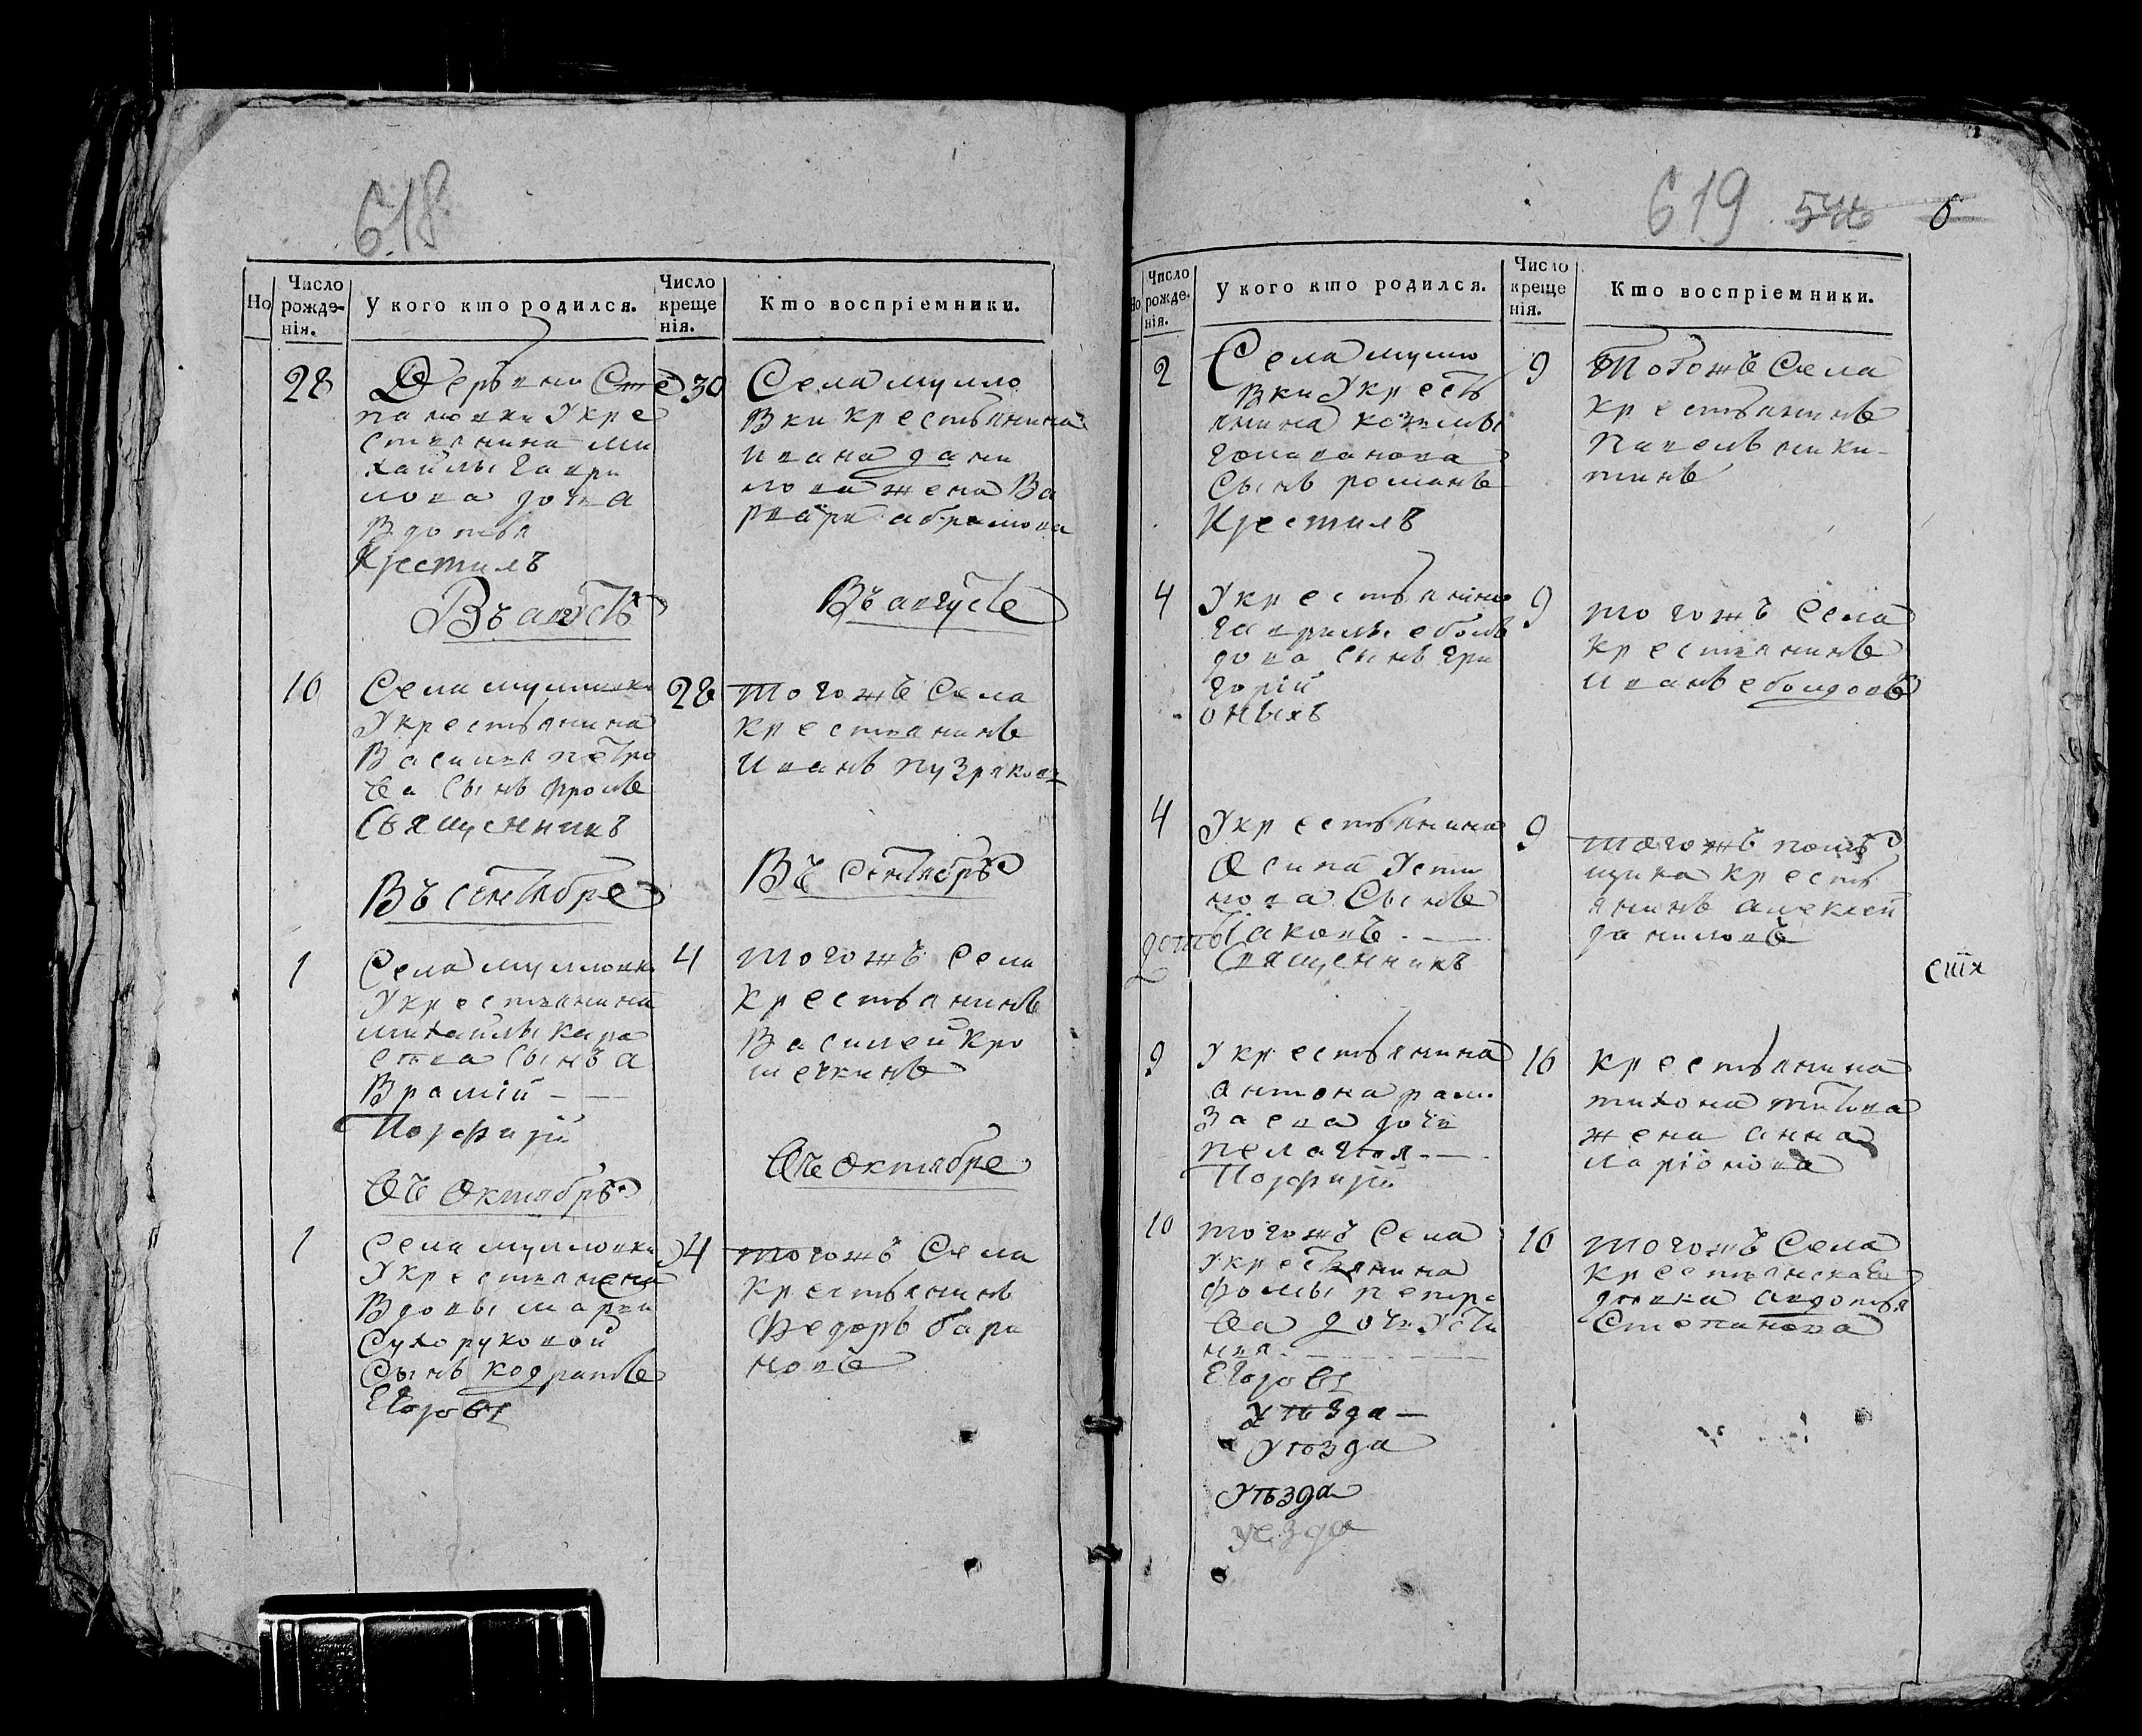 618
Но
Число рожденія.
У кого кто родился.
Число крещенія.
Кто воспріемники.
28
Деревни Сте
пановки у кре
стьянина ми
хайлы гаври
лова дочка
Вдотья
Крестилъ
30
Села мулло
вки крестьянина
ивана дани
лова жена Ва
рвара абрамова
Въ августѣ
Въ августе
10
Села мулловки
У крестьянина
Василья петро
ва сынъ фролъ
Священникъ
28
тогожъ села
крестьянинъ
иванъ пузряковъ
Въ сентябре
Въ сентябрѣ
1
Села мулловки
У крестьянина
михайлы кара
сева сынъ а
врамій - -
Порфирій
4
тогожъ села
крестьянинъ
Василей кро
шечкинъ
Въ Октябрѣ
Въ октябре
1
села мулловки
У крестьянсна
Вдовы марьи
Сухоруковой
сынъ кодратъ
Егоровъ
4
тогожъ Села
крестьянинъ
Федоръ бара
новъ
619 546 6
Но
Число рожденія.
У кого кто родился.
Число крещенія.
Кто воспріемники.
2
Села мулло
вки У кресть
янина козьмы
голованова
Сынъ романъ
Крестилъ
9
Тогожъ Села
крестьянинъ
павелъ ники-
тинъ
4
У крестьянина
гаврилы еболь
дова сынъ гри
горій
оныхъ
9
тогожъ села
крестьянинъ
иванъ еболдовъ
4
У крестьянина
Осипа Усти
нова Сынъ
Іаковъ - —
Священникъ
9
тогожъ помѣ
щика крестъ
янинъ алексей
даниловъ
сіих
9
У крестьянина
антона рам
заева дочь
пелагея - —
Порфирій
16
крестьянина
тихона титова
жена анна
ларіонова
10
тогожъ Села
У крестьянина
Фомы петро
ва дочь Усти
нья
Егоровъ
16
тогожъ Села
крестьянская
девка авдотья
Степанова
Уѣзда —
Уѣзда
Уѣзда
Уезда